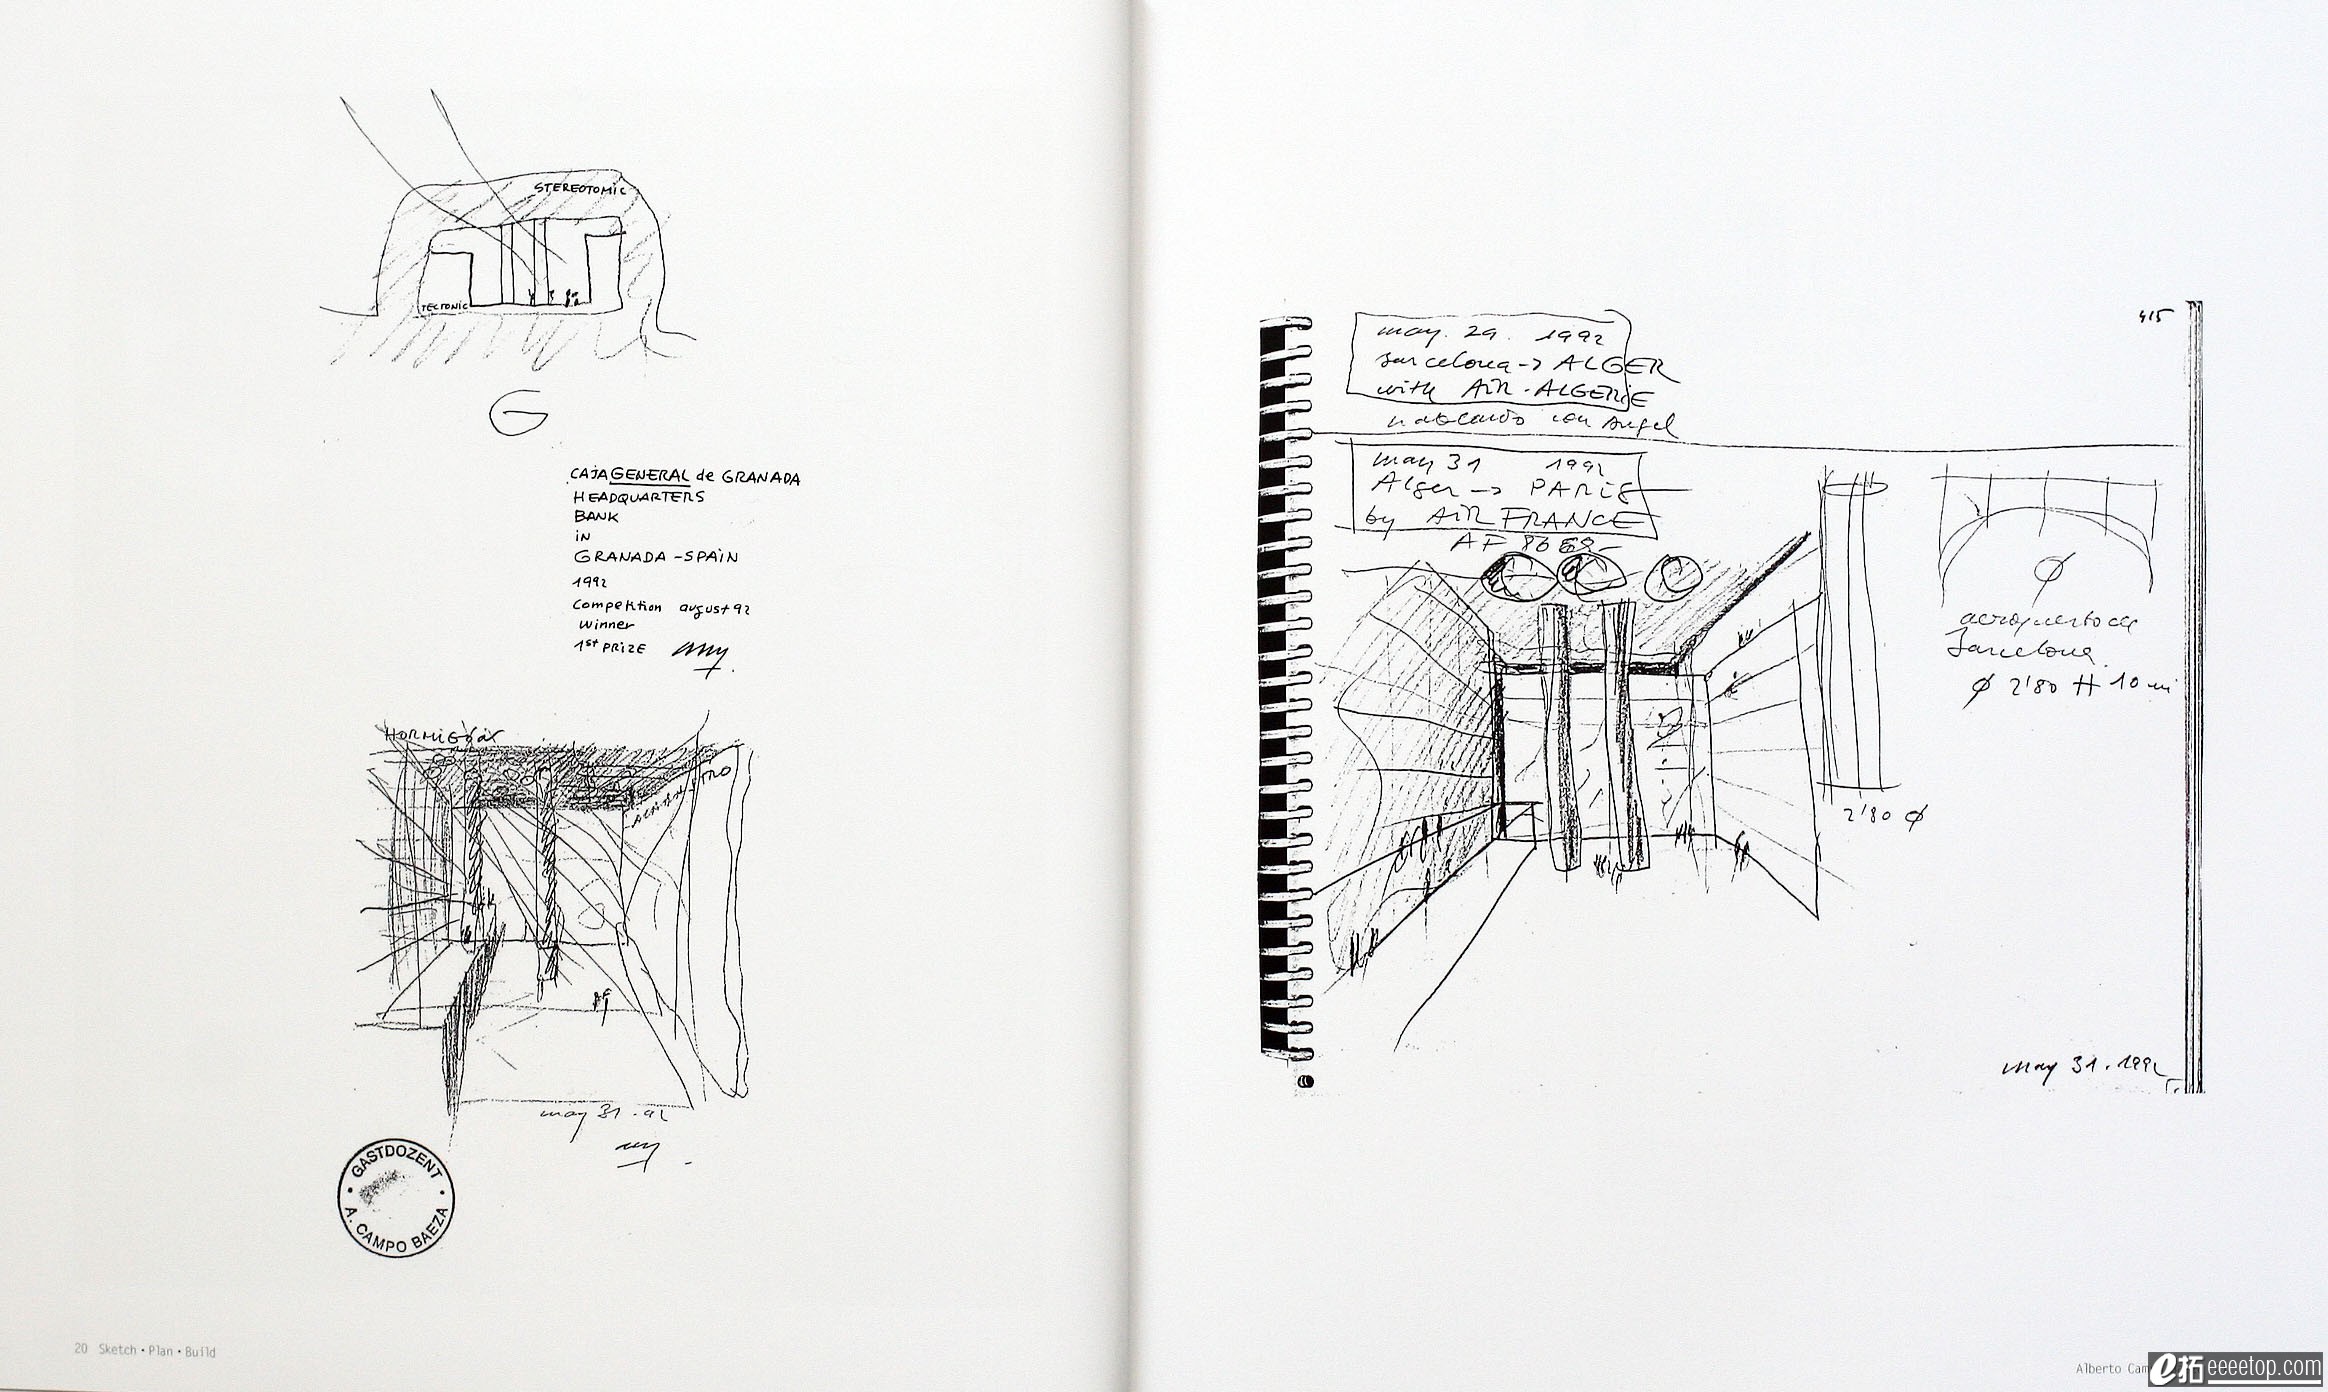 STEREOTOMIC
TECTONIC
G
CAJA GENERAL de GRANADA
HEADQUARTERS
BANK
iN
GRANADA - SPAiN
1992
competition august 92
winner
1st PRIZE
HORMIGÓN
ALABASTRO
may 31 . 92
GASTDOZENT
A. CAMPO BAEZA
20 Sketch • Plan • Build
415
may. 29. 1992
Barcelona -> ALGER
with AiR - ALGERiE
con Angel
may 31 1992
Alger -> PARiS
by AiR FRANCE
AF
Ø
aeropuerto de
Barcelona
Ø 2'80 H 10 m
2'80 Ø
may 31 . 1992
Alberto Cam
e拓 eeeetop.com